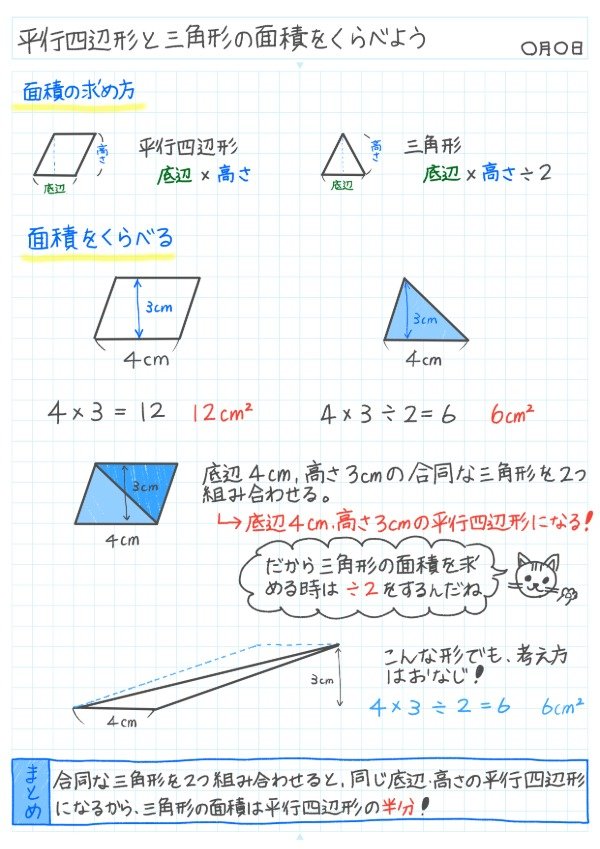 平行四辺形と三角形の面積をくらべよう
〇月〇日
面積の求め方
高さ
底辺
平行四辺形
底辺×高さ
高さ
底辺
三角形
底辺×高さ÷2
面積をくらべる
3cm
4cm
3cm
4cm
4×3=12 12cm²
4×3÷2=6 6cm²
3cm
4cm
底辺4cm,高さ3cmの合同な三角形を2つ
組み合わせる。
↳底辺4cm,高さ3cmの平行四辺形になる!
だから三角形の面積を求
める時は÷2をするんだね
3cm
4cm
こんな形でも、考え方
はおなじ!
4×3÷2=6 6cm²
まとめ
合同な三角形を2つ組み合わせると,同じ底辺・高さの平行四辺形
になるから、三角形の面積は平行四辺形の半分!